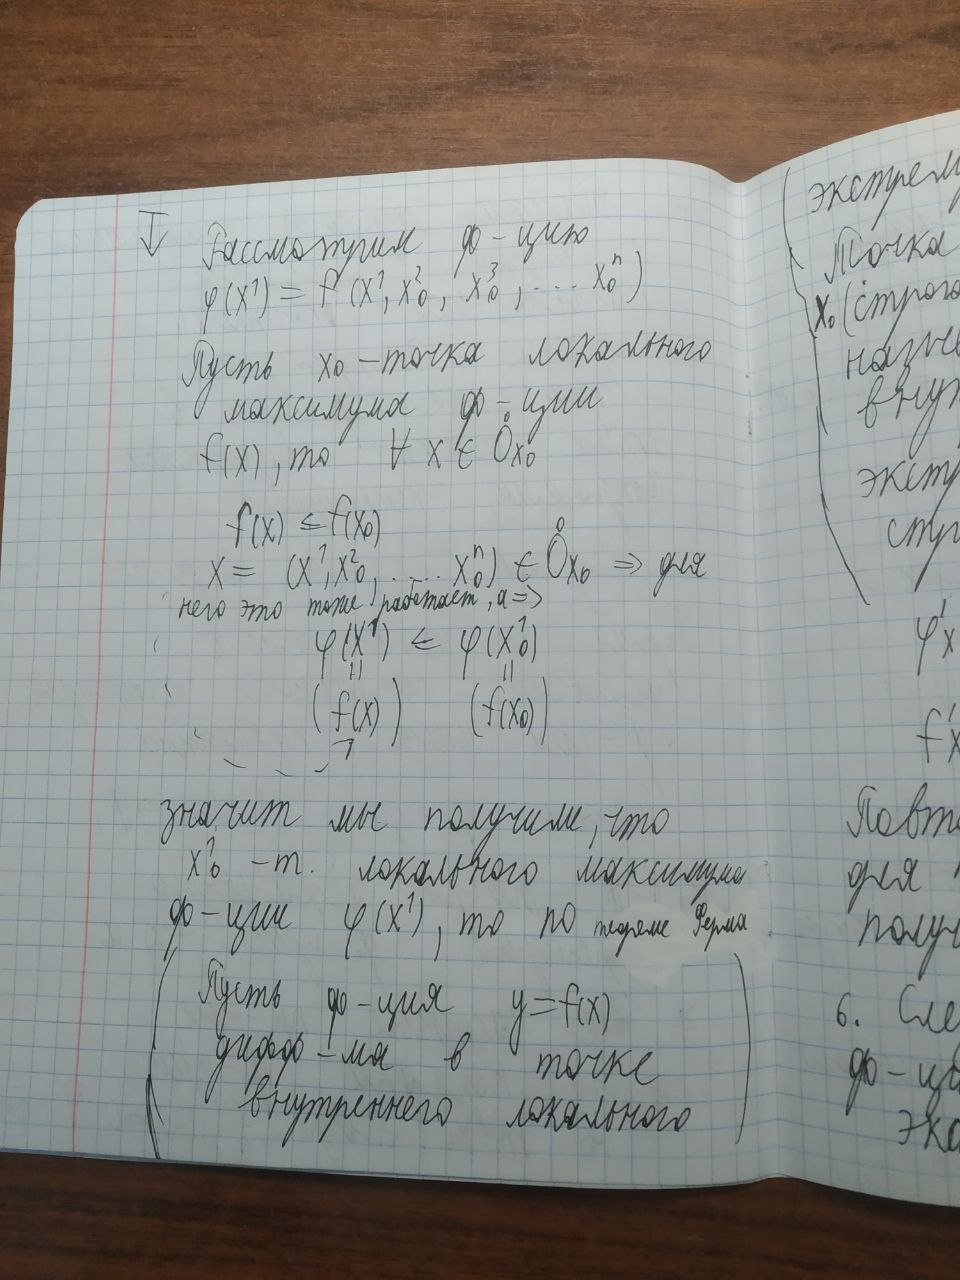 Рассмотрим ф-цию
φ(x¹) = f(x¹, x²₀, x³₀, ... xⁿ₀)
Пусть x₀ – точка локального
максимума ф-ции
f(x), то ∀ x ∈ O̊x₀
f(x) ≤ f(x₀)
x = (x¹, x²₀, ..... xⁿ₀) ∈ O̊x₀ ⇒ для
него это тоже работает, а ⇒
φ(x¹) ≤ φ(x¹₀)
|| ||
(f(x)) (f(x₀))
значит мы получим, что
x¹₀ – т. локального максимума
ф-ции φ(x¹), то по теореме Ферма
(Пусть ф-ция y = f(x)
дифф-ма в точке
внутреннего локального)
экстрем
Точка
x₀ (строго
назыв
внут
экстр
стр
φ'x
f'x
Повто
для
получ
6. Сле
ф-ц
экс